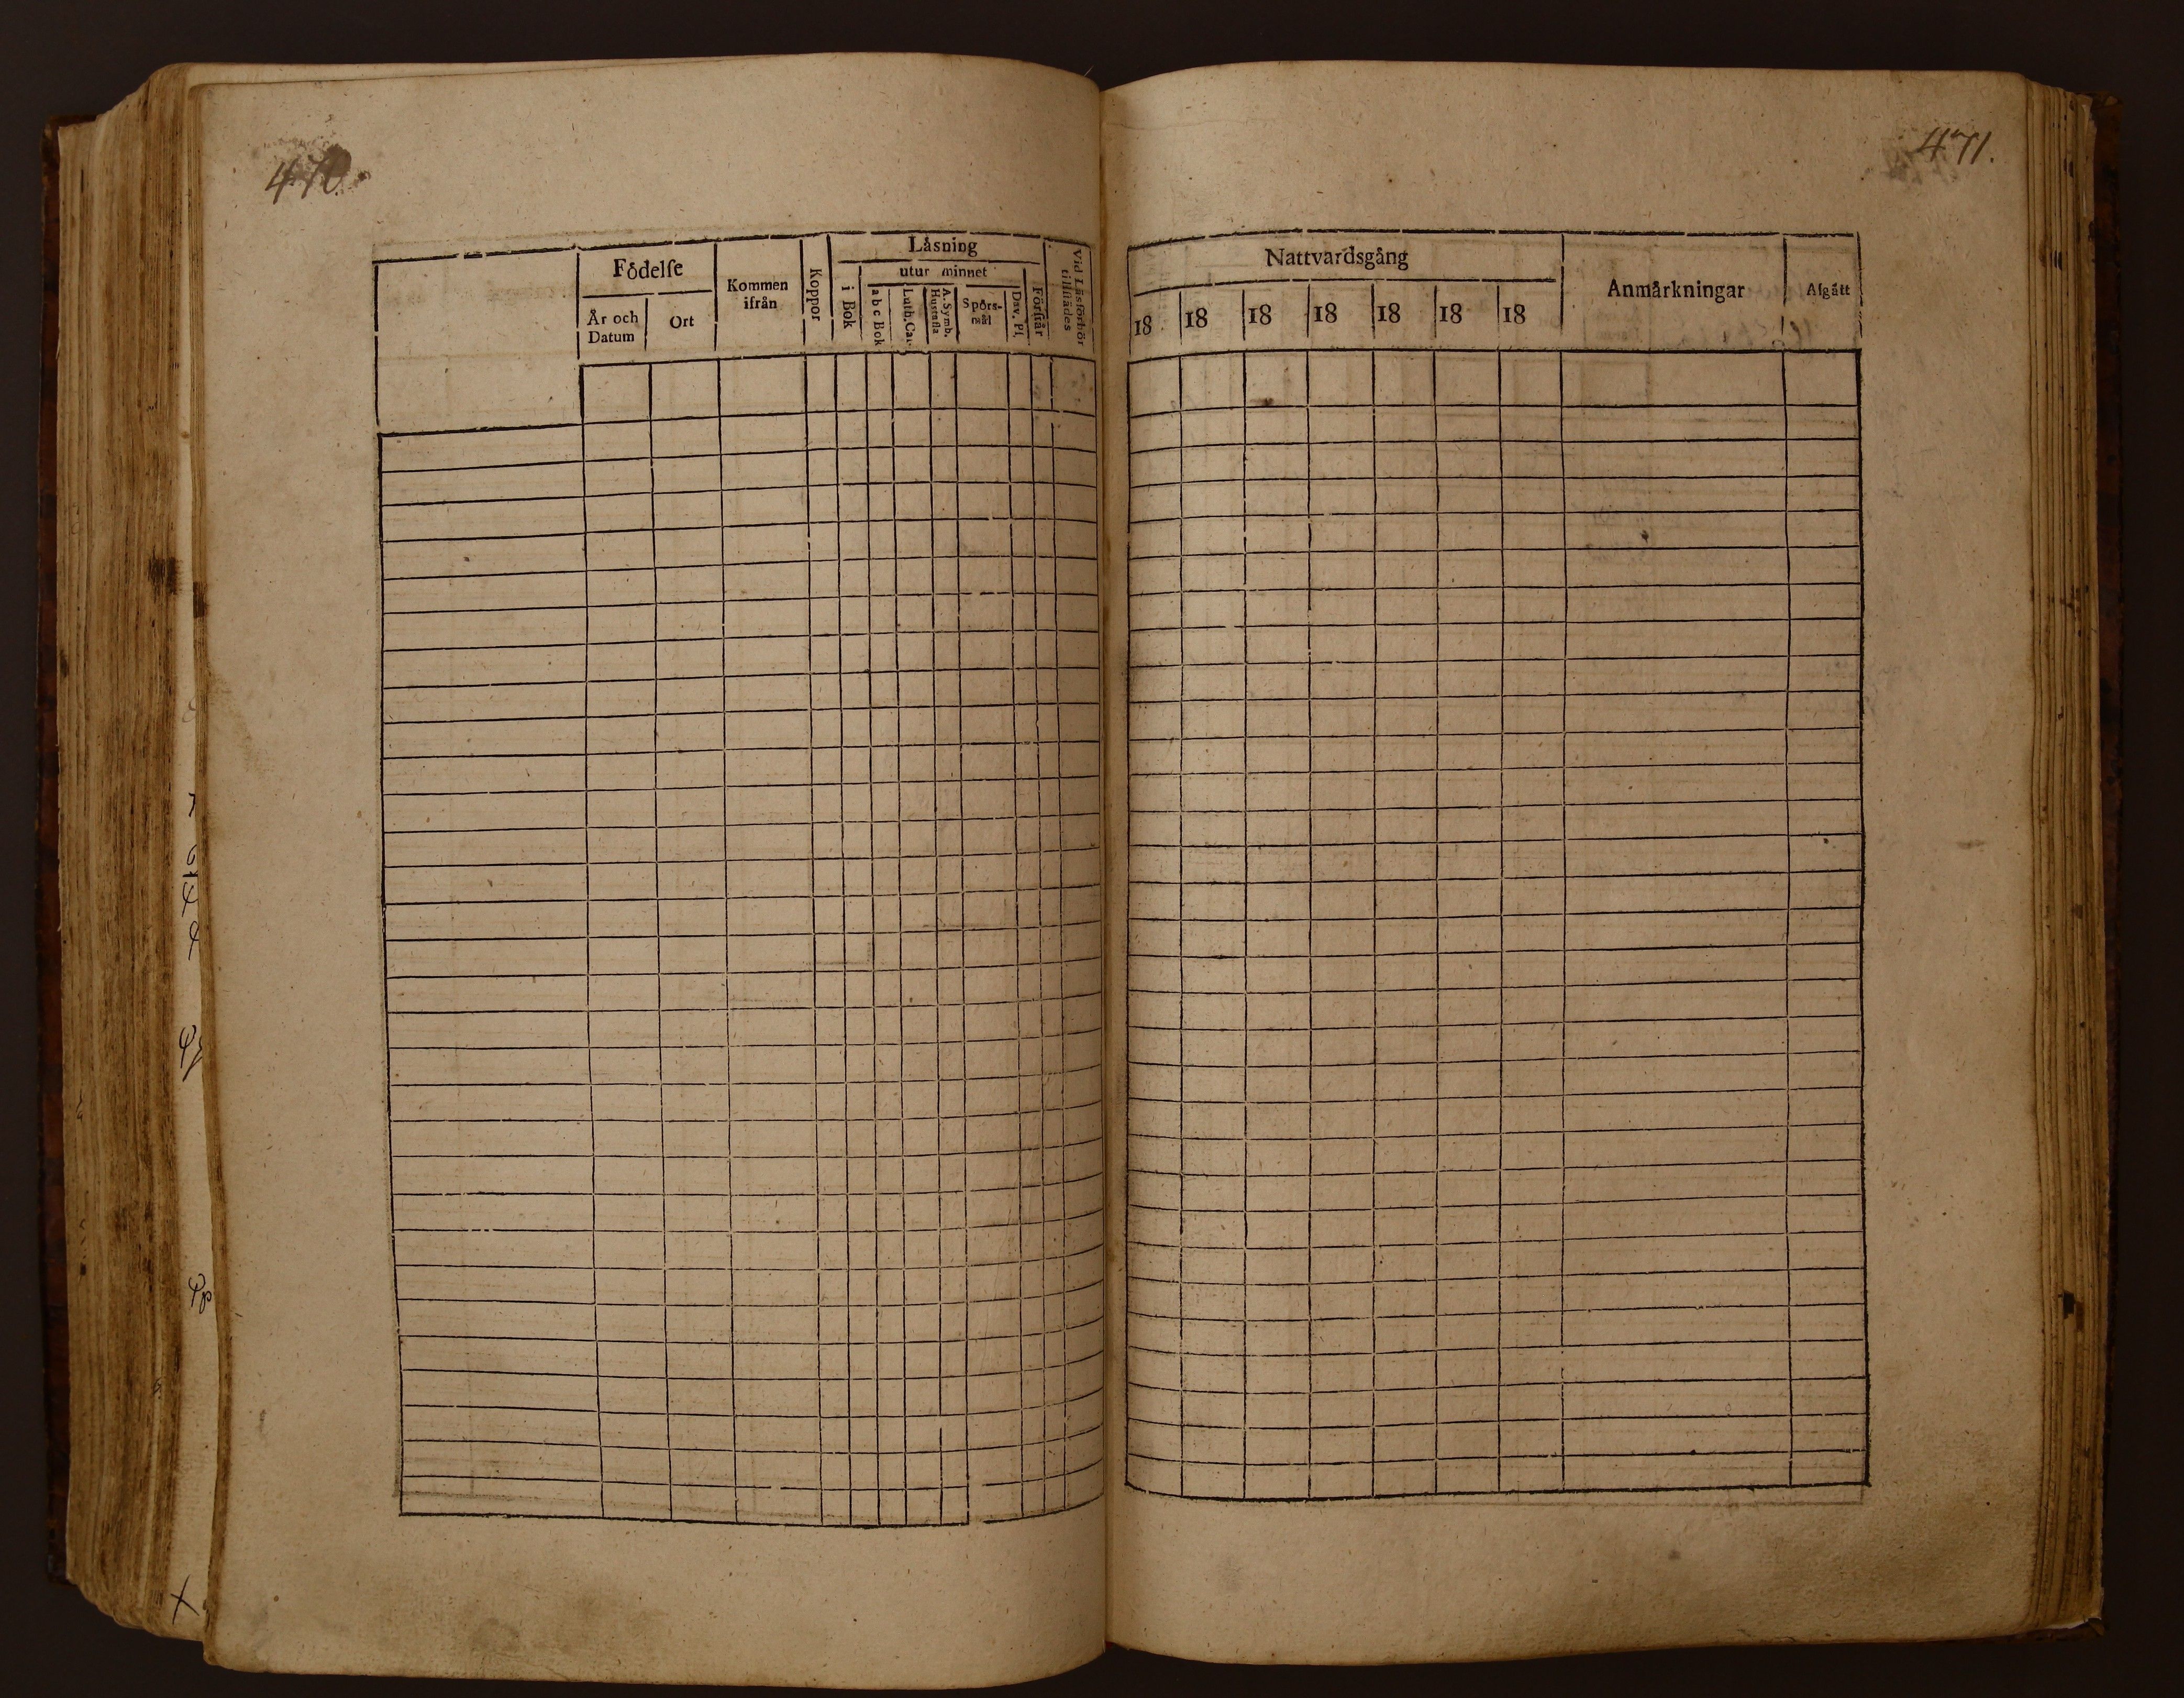 470.
Födelſe
År och Datum
Ort
Kommen ifrån
Koppor
Läsning
i Bok
utur minnet
a b c Bok
Luth. Cat.
A. Symb. Hustafla
Spörsmål
Dav. Pſ.
Förſtår
Vid Läsförhör tillſtädes
471.
Nattvardsgång
18 18 18 18 18 18 18
Anmärkningar
Afgått